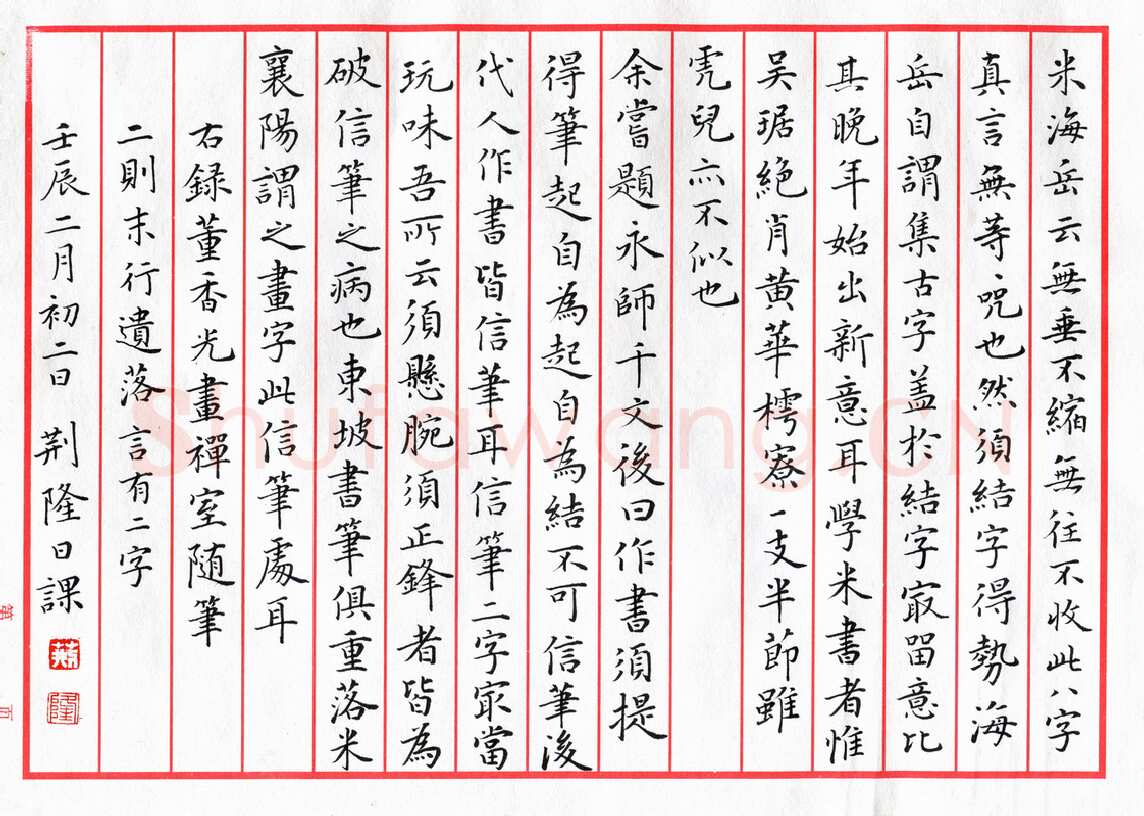 米海岳云無垂不縮無往不收此八字
真言無等等咒也然須結字得勢海
岳自謂集古字蓋於結字最留意比
其晚年始出新意耳學米書者惟
吳琚絕肖黃華樗寮一支半節雖
虎兒亦不似也
余嘗題永師千文後曰作書須提
得筆起自為起自為結不可信筆後
代人作書皆信筆耳信筆二字最當
玩味吾所云須懸腕須正鋒者皆為
破信筆之病也東坡書筆俱重落米
襄陽謂之畫字此信筆處耳
右録董香光畫禪室随筆
二則末行遺落言有二字
壬辰二月初二日 荆隆日課
荆
隆
第 頁
Shufawang.CN